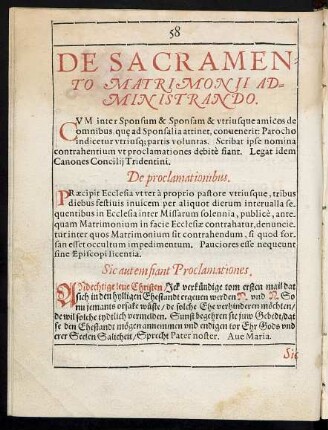 58
DE SACRAMEN-
TO MATRIMONII AD-
MINISTRANDO.
CVM inter Sponsum & Sponsam & vtriusque amicos de
omnibus, quę ad Sponsalia attinet, conuenerit: Parocho
indicetur vtriusq; partis voluntas. Scribat ipse nomina
contrahentium vt proclamationes debitè fiant. Legat idem
Canones Concilij Tridentini.
De proclamationibus.
PRæcipit Ecclesia vt ter à proprio pastore vtriusque, tribus
diebus festiuis inuicem per aliquot dierum interualla se-
quentibus in Ecclesia inter Missarum solennia, publicè, ante-
quam Matrimonium in facie Ecclesiæ contrahatur, denuncie-
tur inter quos Matrimonium sit contrahendum, si quod for-
san esset occultum impedimentum. Pauciores esse nequeunt
sine Episcopi licentia.
Sic autem fiant Proclamationes.
ANdechtige leue Christen / Jck verkündige tom ersten mail dat
sich in den hylligen Ehestandt ergeuen werden N. vnd N. So
nu jemants orsake wüste / de solche Ehe verhinderen möchten /
de wil solche tydtlich vermelden. Sunst begehren sie juw Gebedt / dat
se den Ehestandt mögen annemmen vnd endigen tor Ehr Gods vnd
erer Seelen Salicheit / Sprecht Pater noster. Aue Maria.
Sic